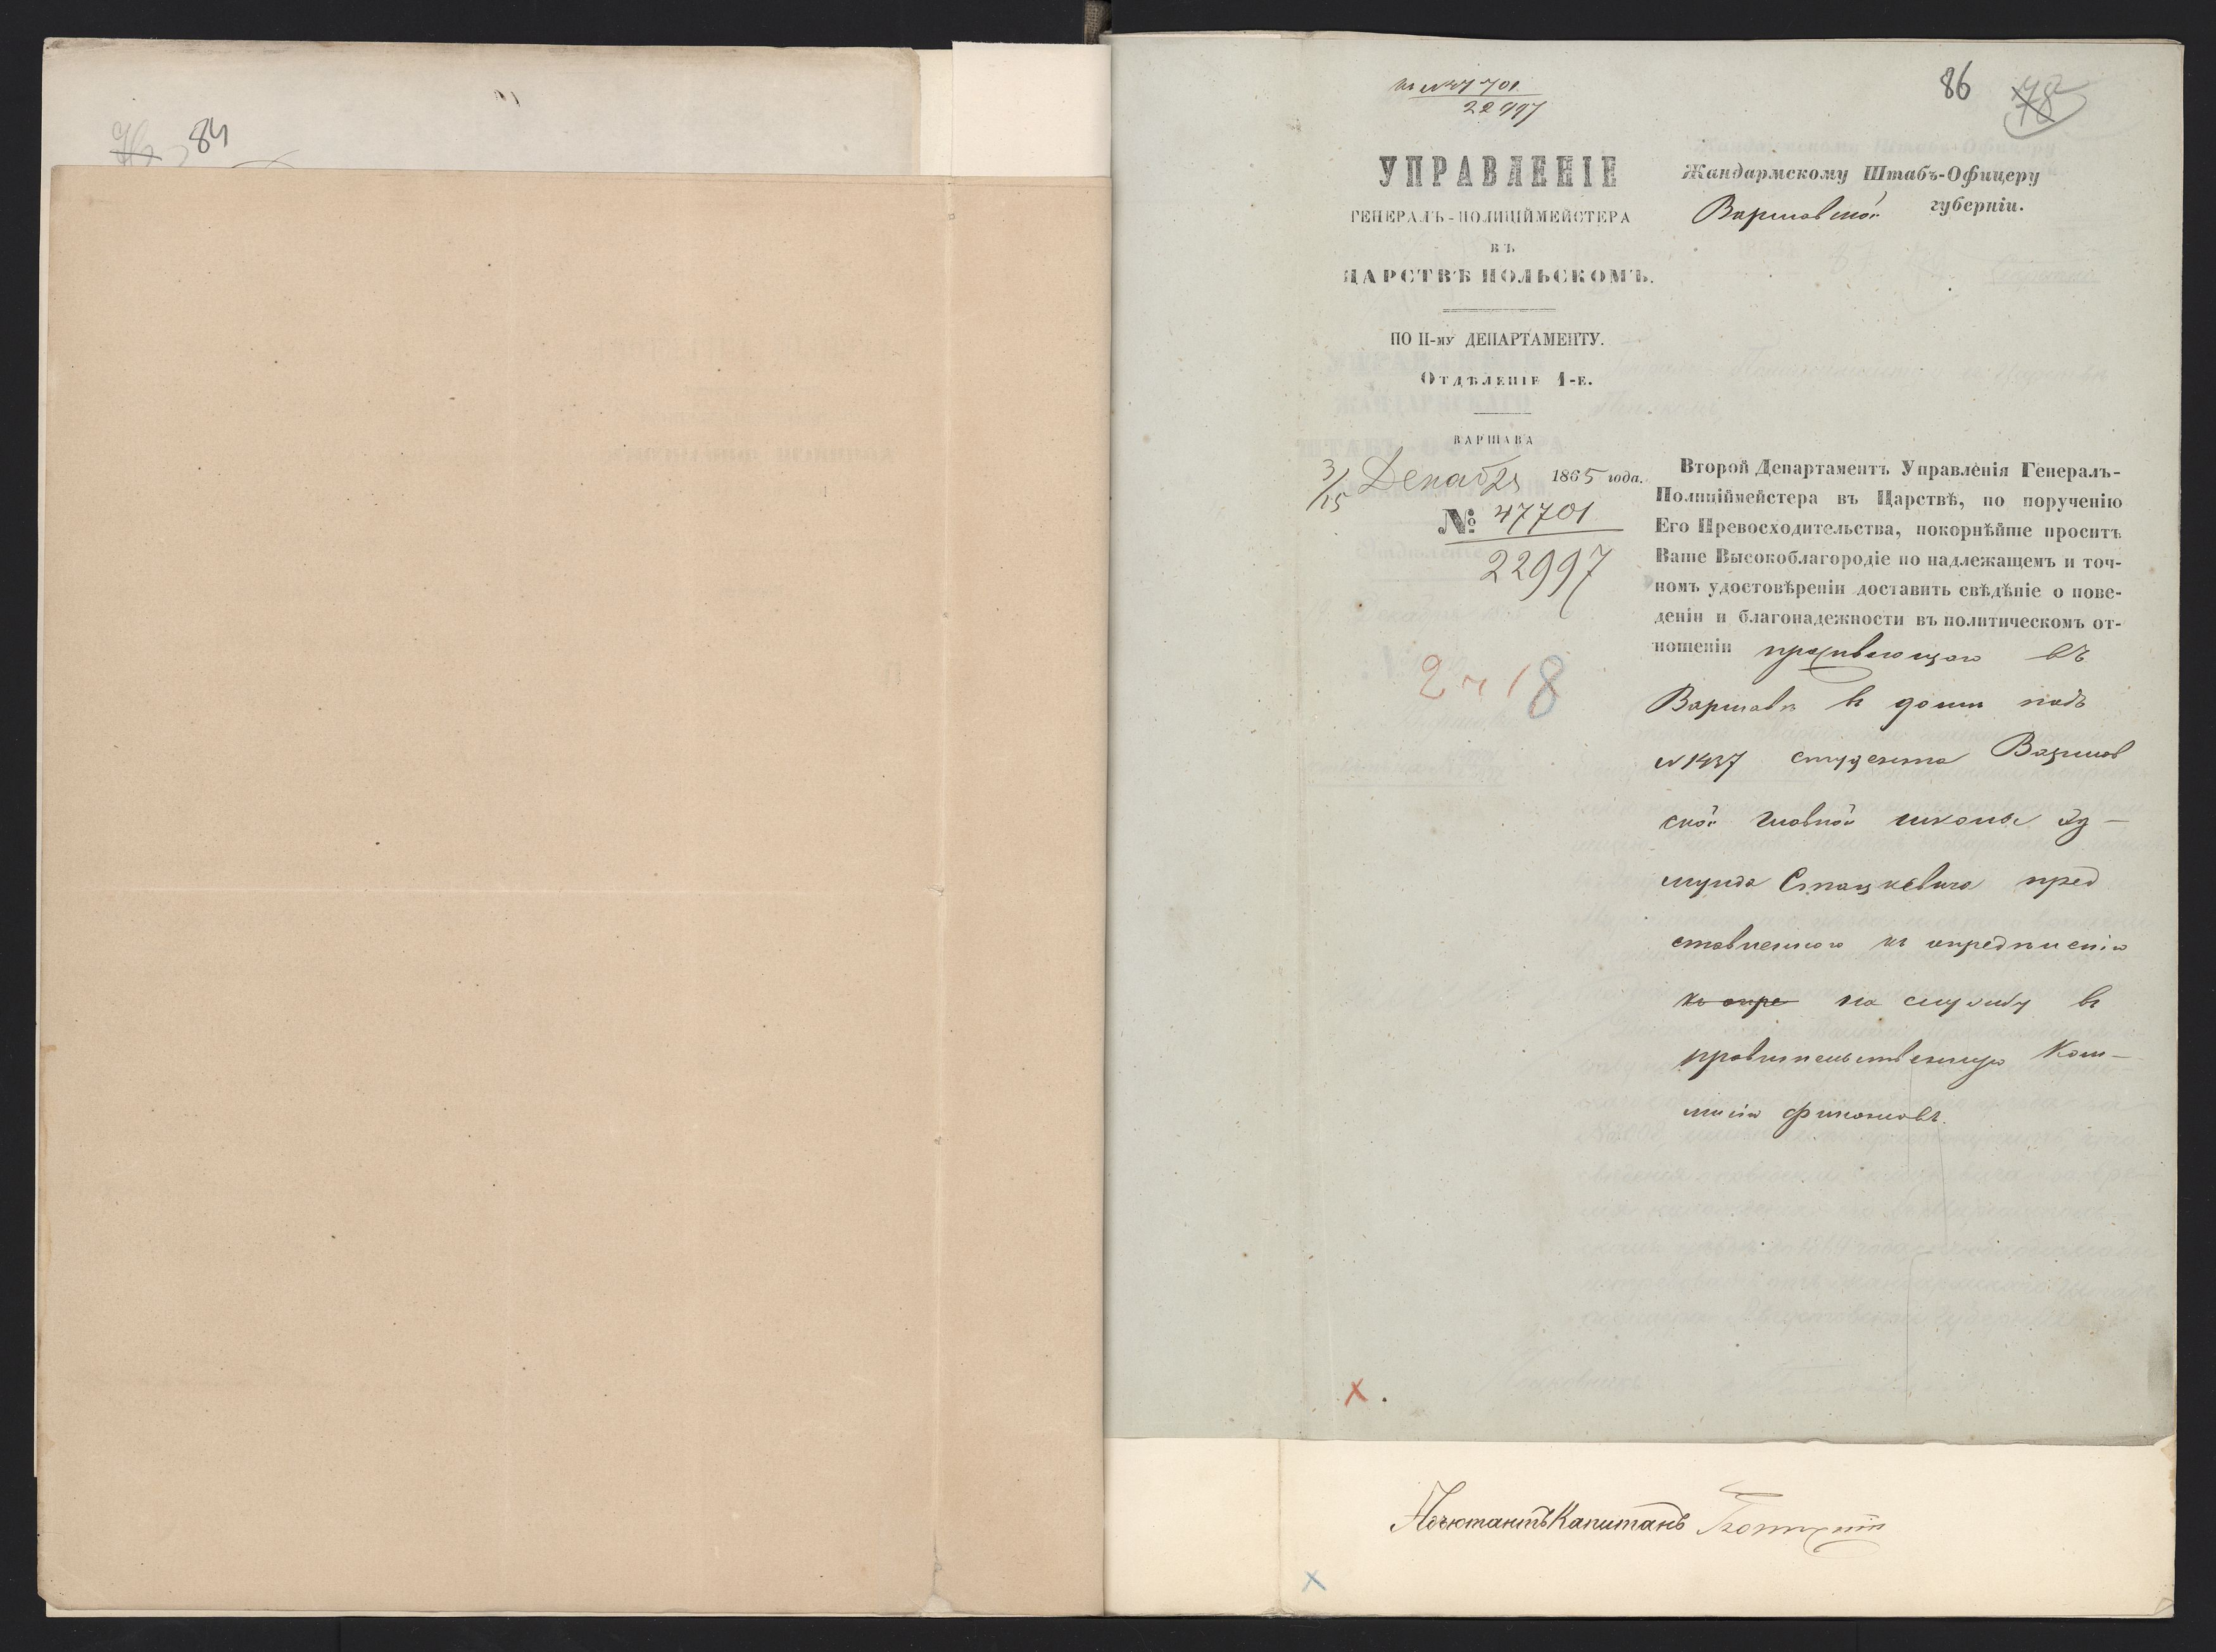 76 84
86 78
къ №47701
22997
УПРАВЛЕНІЕ
ГЕНЕРАЛЪ-ПОЛИЦІЙМЕЙСТЕРА
ВЪ
ЦАРСТВѢ ПОЛЬСКОМЪ.
ПО II-му ДЕПАРТАМЕНТУ.
Отдѣленіе 1-е.
ВАРШАВА
3/15 Декабря 1865 года.
№ 47701
22997
Жандармскому Штабъ-Офицеру
Варшавской губерніи.
Второй Департаментъ Управленія Генералъ-
Полиціймейстера въ Царствѣ, по порученію
Его Превосходительства, покорнѣйше проситъ
Ваше Высокоблагородіе по надлежащемъ и точ-
номъ удостовѣреніи доставить свѣдѣніе о пове-
деніи и благонадежности въ политическомъ от-
ношеніи проживающаго въ
Варшавѣ въ домѣ подъ
№1437 студента Варшав
ской Главной школы Эд-
мунда Стацкевича пред
ставленного къ опредѣленію
къ опре на службу въ
правительственную Ком-
мисію финансовъ.
Адъютантъ Капитанъ